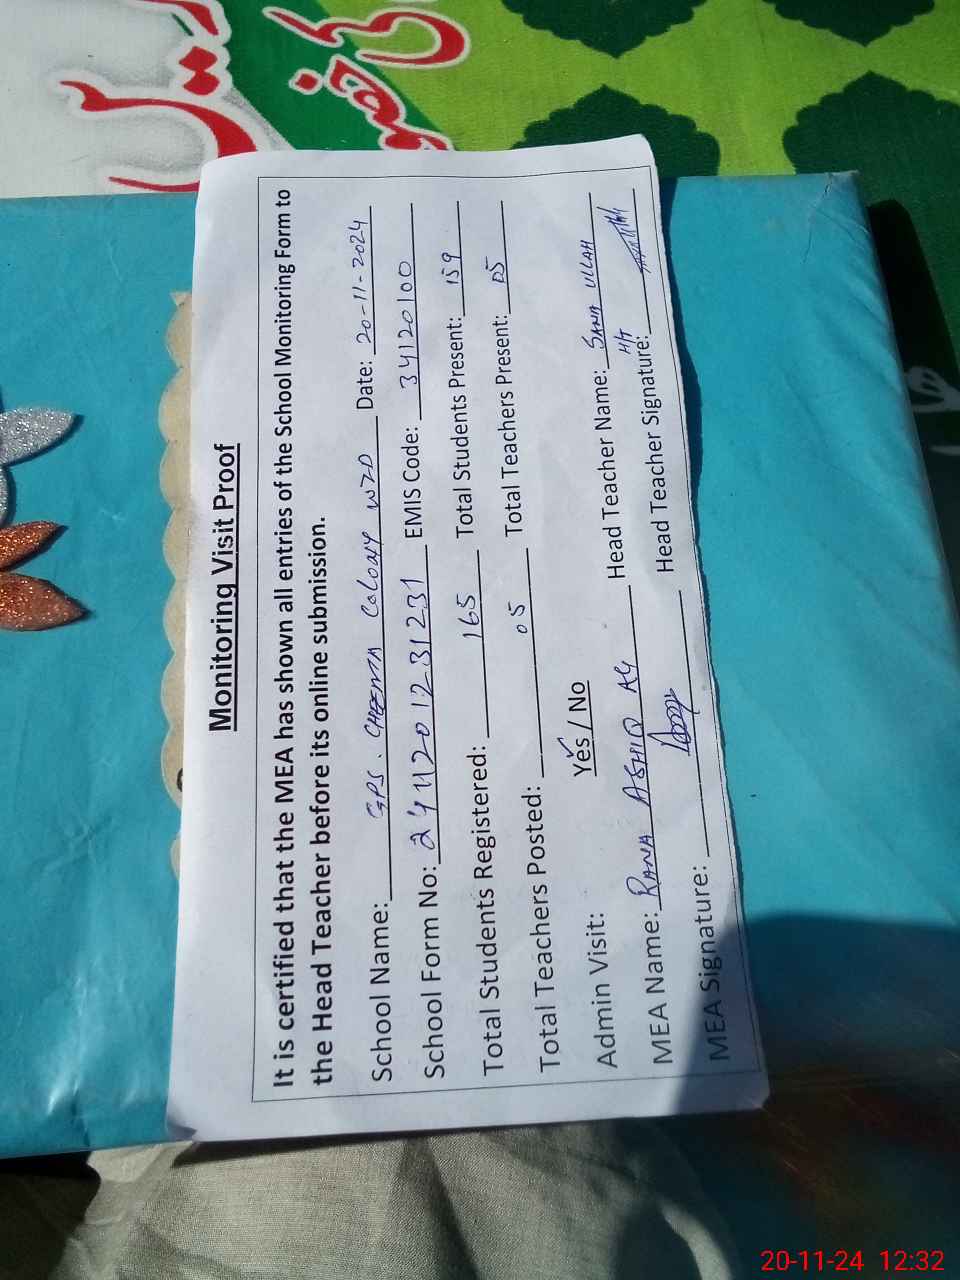 Monitoring Visit Proof
It is certified that the MEA has shown all entries of the School Monitoring Form to
the Head Teacher before its online submission.
School Name: GPS. CHEEMA COLONY WZD Date: 20-11-2024
School Form No: 2411201231231 EMIS Code: 34120100
Total Students Registered: 165 Total Students Present: 159
Total Teachers Posted: 05 Total Teachers Present: 05
Admin Visit: Yes / No
MEA Name: RANA ASHIQ Ali Head Teacher Name: SANA ULLAH
H/T
MEA Signature: Head Teacher Signature:
20-11-24 12:32